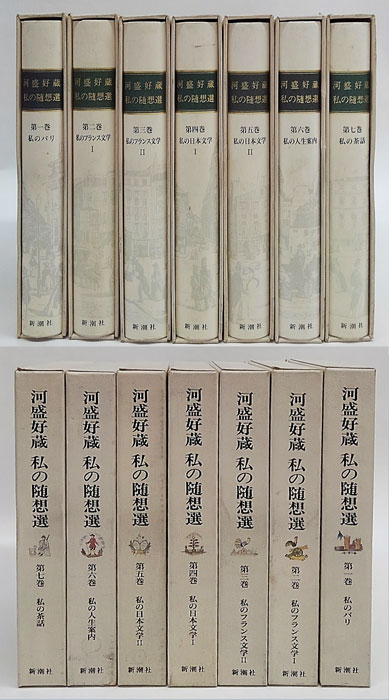 河盛好蔵
私の随想選
第一巻
私のパリ
新潮社
河盛好蔵
私の随想選
第二巻
私のフランス文学
I
新潮社
河盛好蔵
私の随想選
第三巻
私のフランス文学
II
新潮社
河盛好蔵
私の随想選
第四巻
私の日本文学
I
新潮社
河盛好蔵
私の随想選
第五巻
私の日本文学
II
新潮社
河盛好蔵
私の随想選
第六巻
私の人生案内
新潮社
河盛好蔵
私の随想選
第七巻
私の茶話
新潮社
河盛好蔵 私の随想選
第七巻 私の茶話
新潮社
河盛好蔵 私の随想選
第六巻 私の人生案内
新潮社
河盛好蔵 私の随想選
第五巻 私の日本文学II
新潮社
河盛好蔵 私の随想選
第四巻 私の日本文学I
新潮社
河盛好蔵 私の随想選
第三巻 私のフランス文学II
新潮社
河盛好蔵 私の随想選
第二巻 私のフランス文学I
新潮社
河盛好蔵 私の随想選
第一巻 私のパリ
新潮社